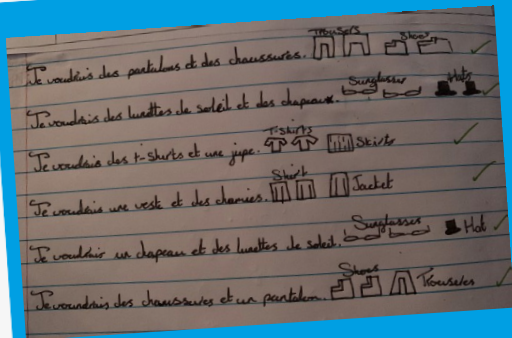 Je voudrais des pantalons et des chaussures. Trousers Shoes
Je voudrais des lunettes de soleil et des chapeaux. Sunglasses Hats
Je voudrais des t-shirts et une jupe. T-Shirts Skirts
Je voudrais une veste et des chamies. Shirt Jacket
Je voudrair un chapeau et des lunettes de soleil. Sunglasses Hat
Je voundrais des chaussures et un pantalon. Shoes Trouseres